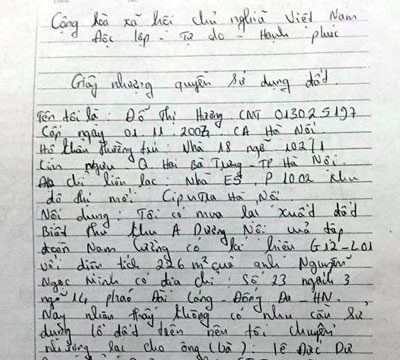 Cộng hòa xã hội chủ nghĩa Việt Nam
Độc lập - Tự do - Hạnh phúc
Giấy nhượng quyền sử dụng đất.
Tên tôi là: Đỗ Thị Hương CMT 013025197
Cấp ngày 01.11.2007 CA Hà Nội.
Hộ khẩu thường trú: Nhà 18 ngõ 1027
Kim ngưu Q. Hai Bà Trưng - TP Hà Nội.
Địa chỉ liên lạc: Nhà E5 P 1002 khu
đô thị mới: Ciputra Hà Nội.
Nội dung: Tôi có mua lại xuất đất
Biệt thự khu A Dương Nội của tập
đoàn Nam Cường có ký hiệu G12-L01
với diện tích 226 m² của anh Nguyễn
Ngọc Minh có địa chỉ: Số 23 ngách 3
ngõ 14 pháo Đài Láng - Đống Đa - HN.
Nay nhận thấy không có nhu cầu sử
dụng lô đất trên nên tôi chuyển
nhượng lại cho ông (bà): Lê Đắc Dư